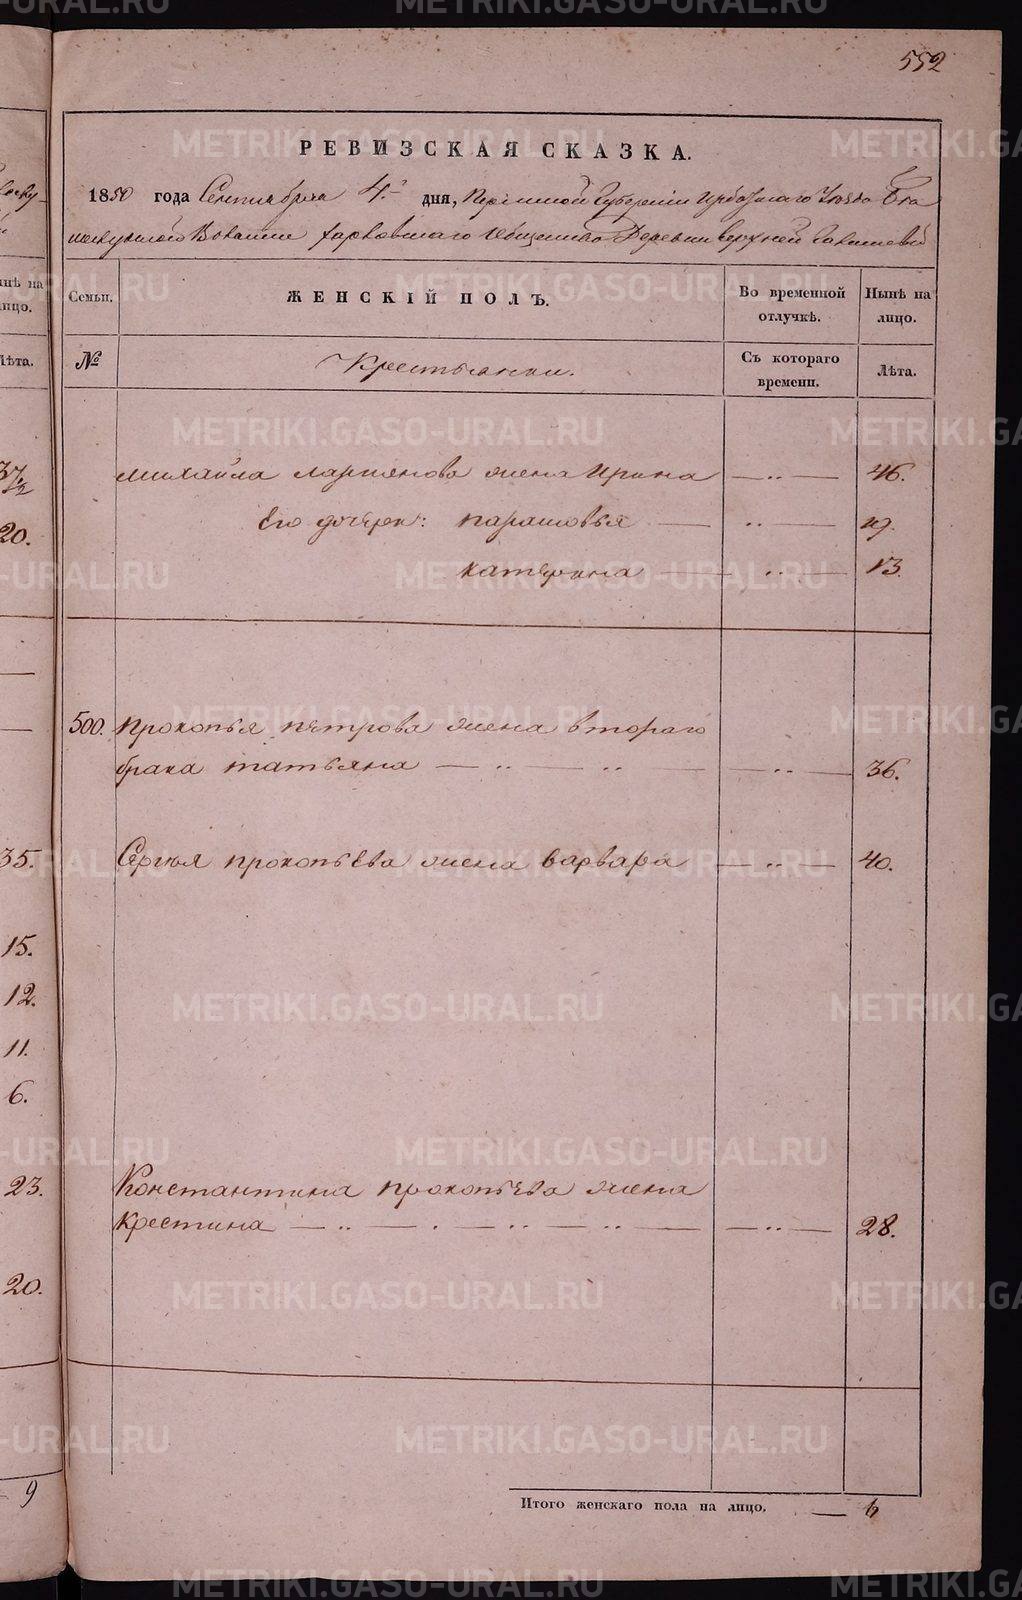 552
РЕВИЗСКАЯ СКАЗКА.
1850 года Сентября 4. дня, Пермской Губернии Ирбитскаго Уезда
Волости Харловскаго Общества Деревни верхней
Семьи. ЖЕНСКІЙ ПОЛЪ. Во временной отлучкѣ. Нынѣ на лицо.
№ Крестьянки. Съ котораго времени. Лѣта.
михайла ларионова жена Ирина 46.
Его дочери: парасковья 19.
катерина 13.
500. прокопья петрова жена втораго
брака татьяна 36.
Сергѣя прокопьева жена варвара 40.
Константина прокопьева жена
крестина 28.
Итого женскаго пола на лицо. 6
нѣ на
лицо.
Лѣта.
37/2
20.
35.
15.
12.
11.
6.
23.
20.
9
METRIKI.GASO-URAL.RU